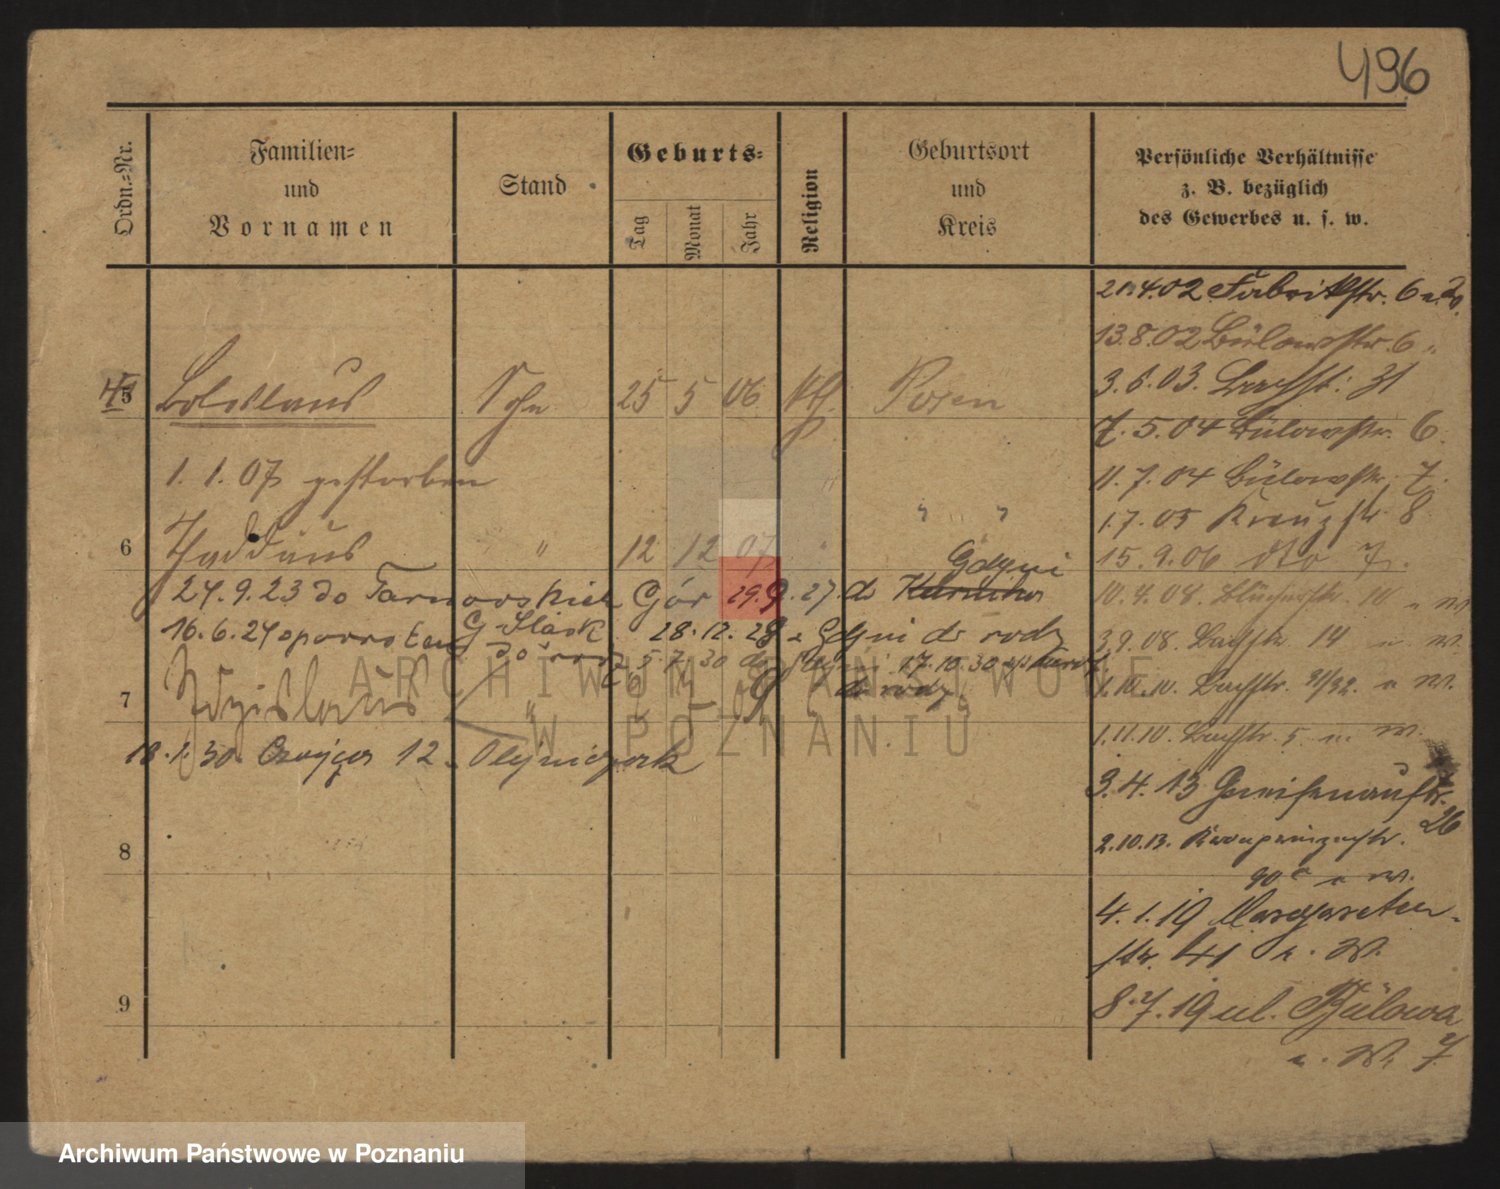 496
Ordn.-Nr.
Familien-
und
Vornamen
Stand
Geburts-
Tag
Monat
Jahr
Religion
Geburtsort
und
Kreis
Persönliche Verhältnisse
z. B. bezüglich
des Gewerbes u. s. w.
5 Boleslaus Sohn 25 5 06 kth. Posen
1. 1. 07 gestorben
6 Thaddäus " 12 12 07 " " "
24.9.23 do Tarnowskich Gór 29.9.27 do Gdyni
G. Śląsk
16.6.24 z powrotem 28.12.28 z Gdyni do rodz
do 5.7.30 do Gdyni 17.10.30
do rodz.
7 Zdzislaus "
18.1.30. 12 Olejniczak
8
9
21.4.02 Fabrikstr. 6
13.8.02 Bülowstr. 6
3.6.03. 31
7.5.04 Bülowstr. 6
11.7.04 Bülowstr. 7.
1.7.05 Kreuzstr. 8
15.9.06 dto 7.
10.4.08. 10 u W
3.9.08. Bachstr. 14 u. W.
1.IV.10. Bachstr. 31/32. u W.
1.11.10. Bachstr. 5 u W.
3.4.13 Gneisenaustr.
26
2.10.13. Kronprinzenstr.
90 u W.
4.1.19 Margareten-
str. 41 u. W.
8.7.19 ul. Bülowa
u. W. 7
ARCHIWUM PAŃSTWOWE
W POZNANIU
Archiwum Państwowe w Poznaniu